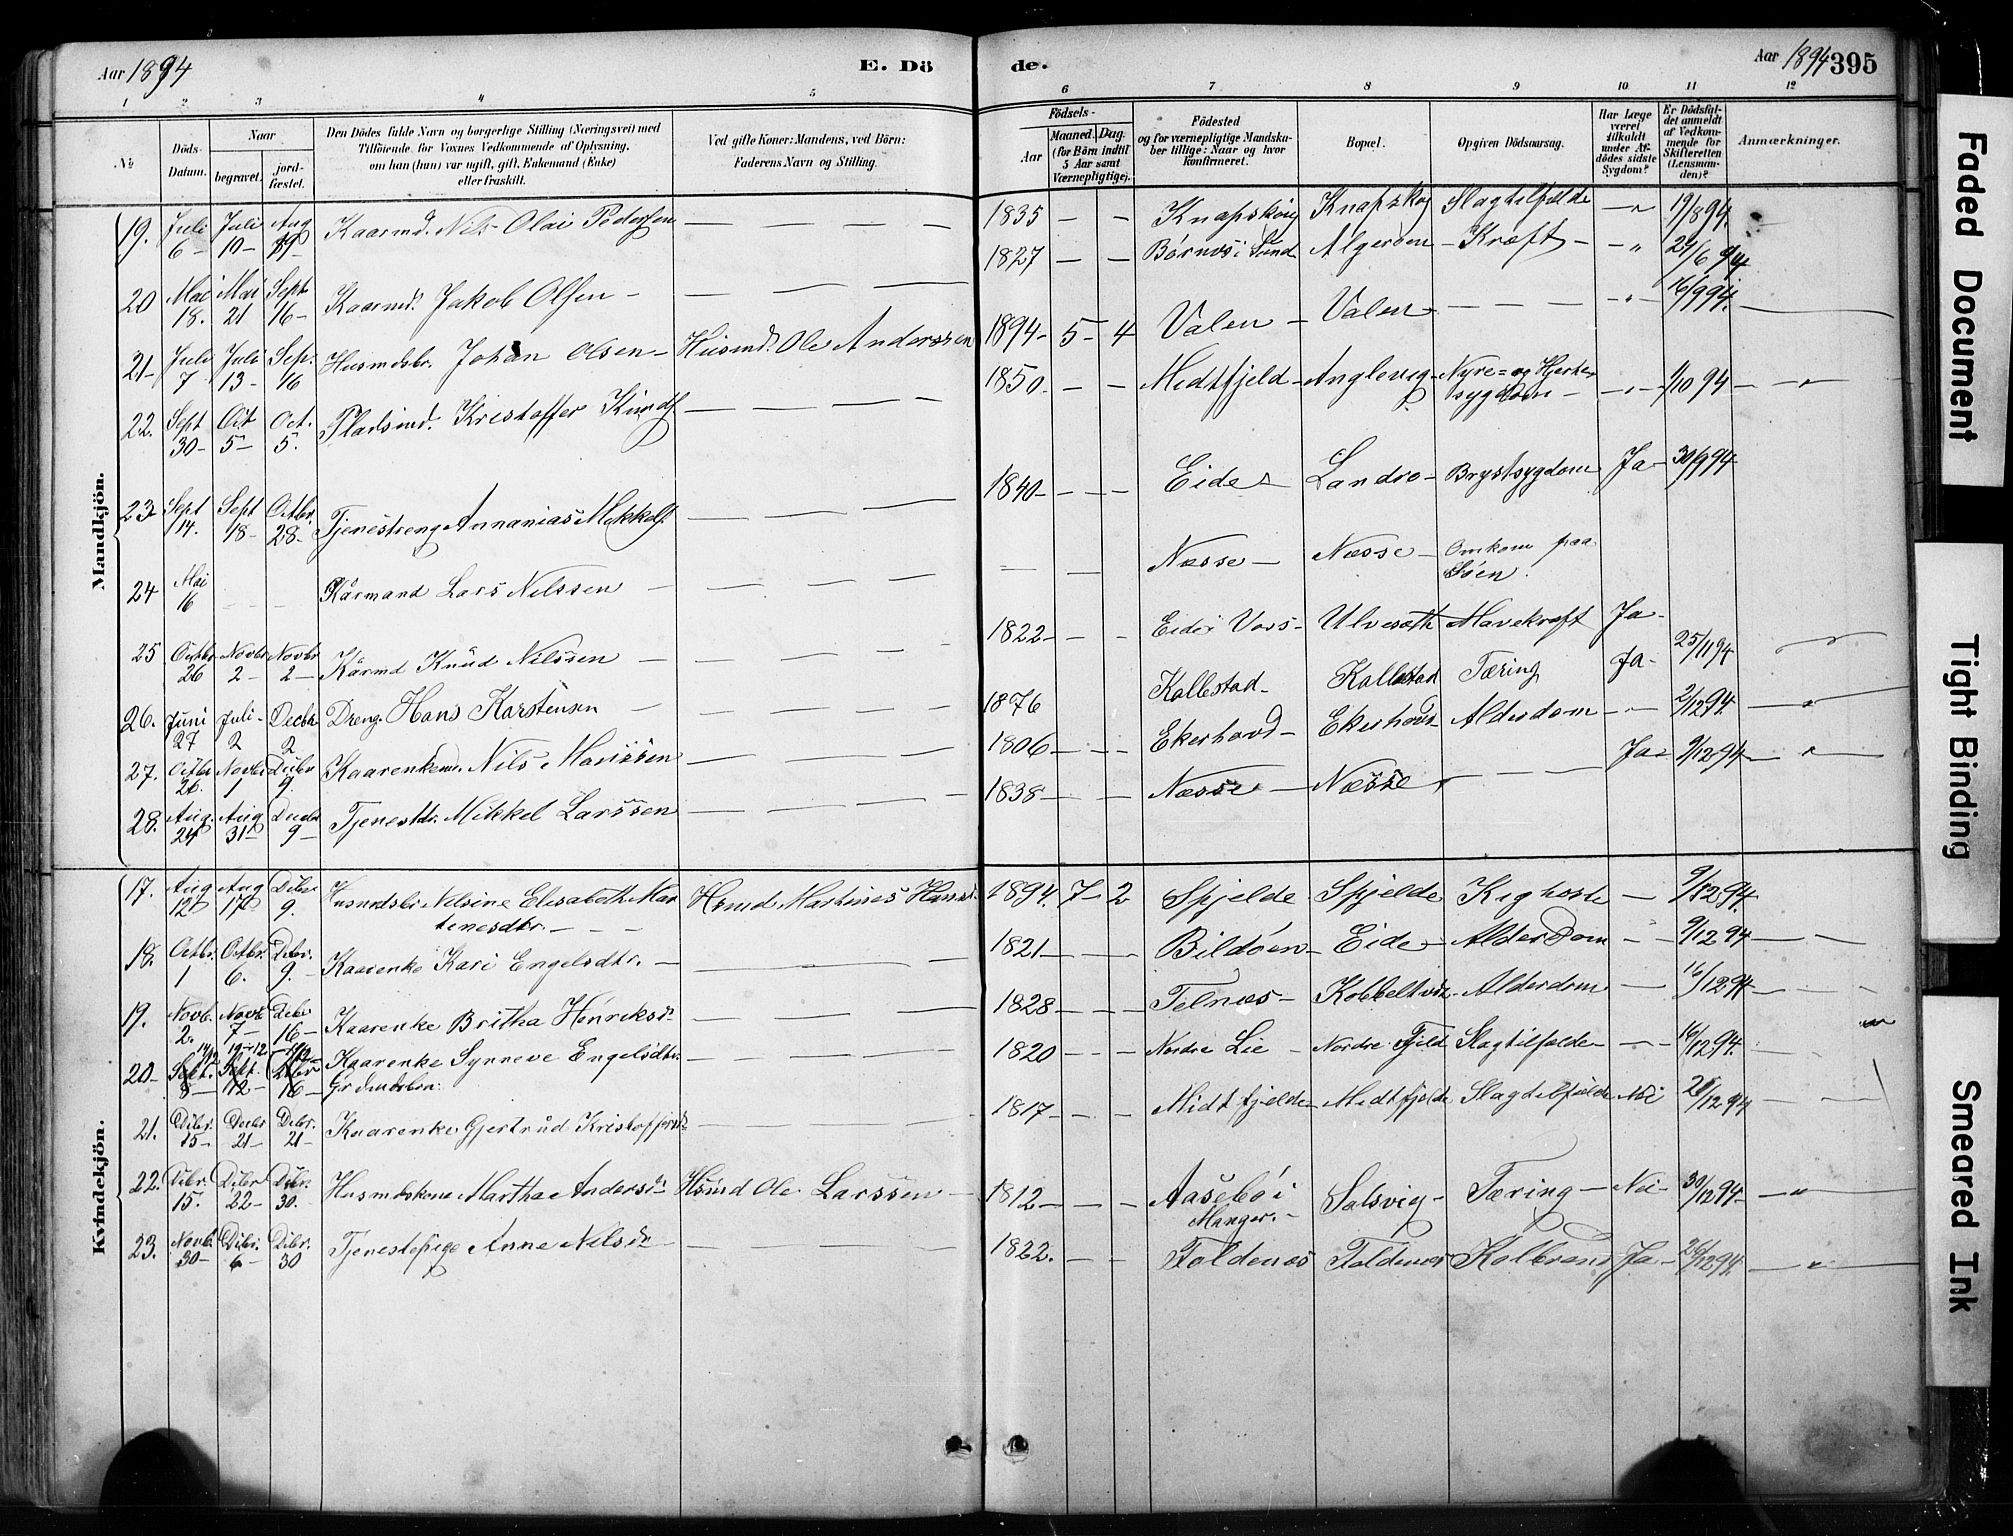 Aar 1894 E. Dö de. Aar 1894 395
1 2 3 4 5 6 7 8 9 10 11 12
№ Döds-Datum. Naar begravet. jordfæstet. Den Dödes fulde Navn og borgerlige Stilling (Næringsvei) med Tilföiende for Voxnes Vedkommende af Oplysning, om han (hun) var ugift, gift, Enkemand (Enke) eller fraskilt. Ved gifte Koner: Mandens, ved Börn: Faderens Navn og Stilling. Födsels- Aar Maaned. Dag. (for Börn indtil 5 Aar samt Værnepligtige). Födested og for værnepligtige Mandskaber tillige: Naar og hvor konfirmeret. Bopæl. Opgiven Dödsaarsag. Har Læge været tilkaldt under Afdödes sidste Sygdom? Er Dödsfaldet anmeldt af Vedkommende for Skifteretten (Lensmanden)? Anmærkninger.
Mandkjön.
19. Juli 6 – Juli 10 – Aug 19 – Kaarmd. Nils Olai Pedersen — 1835 – – Knapskog Knapskog Slagtilfælde – 19/8 94.
20 Mai 18. Mai 21 Sept 16 – Kaarmd. Jakob Olsen – — 1827 – – Børnes i Sund Algerøen – Kræft – – 24/6 94
21 – Juli 7 Juli 13 – Sep. 16 Husmdsbr. Johan Olsen – Husmd. Ole Anderssen 1894 – 5 – 4 Valen – Valen – — – 16/9 94.
22. Sept 30 – Oct 5 – Oct. 5. Pladsmd. Kristoffer Knuds — 1850 – – Midtfjeld – Anglevig – Nyre- og Hjertesygdom – – 1/10 94 –
23 Sept 14. Sept 18 – Octbr. 28 – Tjenestdreng Annanias Mikkels — 1840 – – – Eide Landro – Brystsygdom Ja – 30/9 94
24 Mai 16 – – Kårmand Lars Nilssen – — — – Næsse – Næsse – Omkom paa Søen.
25 Octbr 26 Novbr 2 – Novbr 2 – Kårmd Knud Nilssen – — 1822 – – – Eide i Voss – Ulveseth Mavekræft Ja –
26. Juni 27 Juli 2 Decbr 2 Dreng. Hans Karstensen – — 1876 Kallestad – Kallestad Tæring Ja – 25/11 94
27. Octbr 26 Novbr 1 Decbr 9. Kaarenkemd. Nils Marissen — 1806 – – – Ekerhovd – Ekerhovd – Alderdom – 2/12 94. –
28. Aug. 24 Aug 31 – Decbr 9 – Tjenestdr. Mikkel Larssen — 1838 – – – Næsse – Næsse – — Ja – 9/12 94 –
Kvindekjön.
17. Aug 12 Aug 17 Dcbr 9. Husmdsbr Nilsine Elisabeth Martinesdtr. – – – Hsmd Martines Hanss. 1894. 7 – 2 Spjelde Spjelde Kighoste – 9/12 94.
18. Octbr. 1 Octbr. 6. Dcbr. 9. Kaarenke Kari Engelsdtr. – — 1821 – – Bildøen – Eide – Alderdom – 9/12 94 – –
19. Novb. 2. Novb 7 – Dcbr 16 – Kaarenke Britha Henriksd. — 1828 – – – Telnæs – Kobbeltvdt – Alderdom – 16/12 94 –
20 – Sept. 8 – Sept 12 – Decbr 16 – Kaarenke Synneve Engelsdtr. 1820 – – – Nordre Lie – Nordre Fjeld Slagtilfælde – – 16/12 94.
21. Dcbr. 15 – Decbr 21 – Dcbr. 21 – Kaarenke Gjertrud Kristoffersd. — 1817 – – – Midtfjelde – Midtfjelde Slagtilfælde Nei 21/12 94 – –
22. Dcbr. 15. Dcbr 22 – Dcbr. 30. Husmdskone Martha Andersd. Hsmd Ole Larssen – 1812 – – – Aasebø i Manger. – Solsvig – Tæring – Nei – 30/12 94 –
23. Novb. 30 – Dcbr. 6 Dcbr. 30 Tjenestepige Anne Nilsd. — 1822. – – Foldenæs Foldenæs Kolbrand Ja – 26/12 94. –
Faded Document
Tight Binding
Smeared Ink